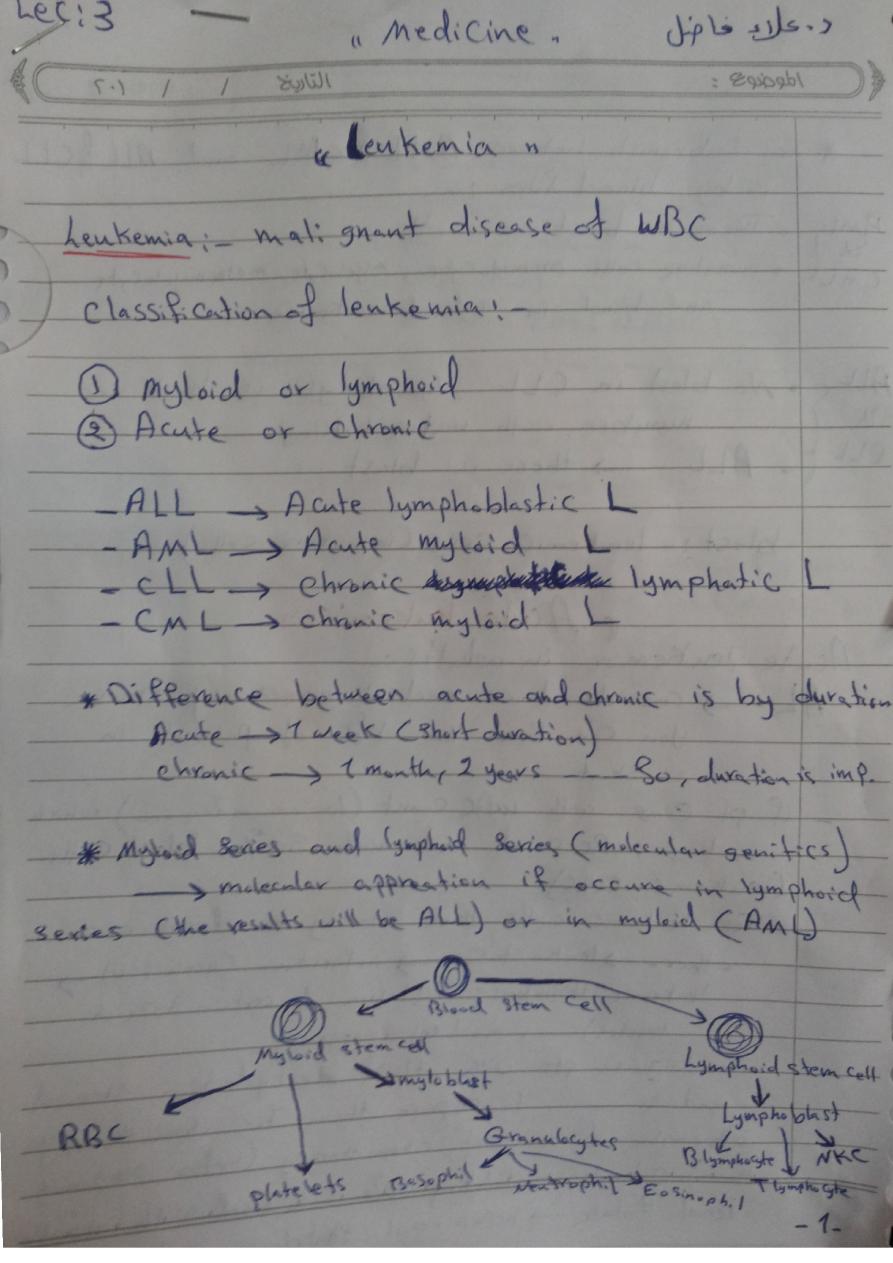 Lec:3
" Medicine "
د. علاء فاضل
الموضوع :
التاريخ / / ٢٠١
" Leukemia "
Leukemia:- malignant disease of WBC
Classification of leukemia:-
① myloid or lymphoid
② Acute or chronic
- ALL → Acute lymphoblastic L
- AML → Acute myloid L
- CLL → chronic lymphatic L
- CML → chronic myloid L
* Difference between acute and chronic is by duration
Acute → 1 week (short duration)
chronic → 1 month, 2 years ---- So, duration is imp.
* Myloid series and lymphoid series (molecular genitics)
→ molecular appreation if occure in lymphoid
series (the results will be ALL) or in myloid (AML)
Blood stem cell
Myloid stem cell
Lymphoid stem cell
myloblast
Lymphoblast
RBC
Granulocytes
B lymphocyte
NKC
platelets
Basophil
Neutrophil
Eosinophil
T lymphocyte
-1-